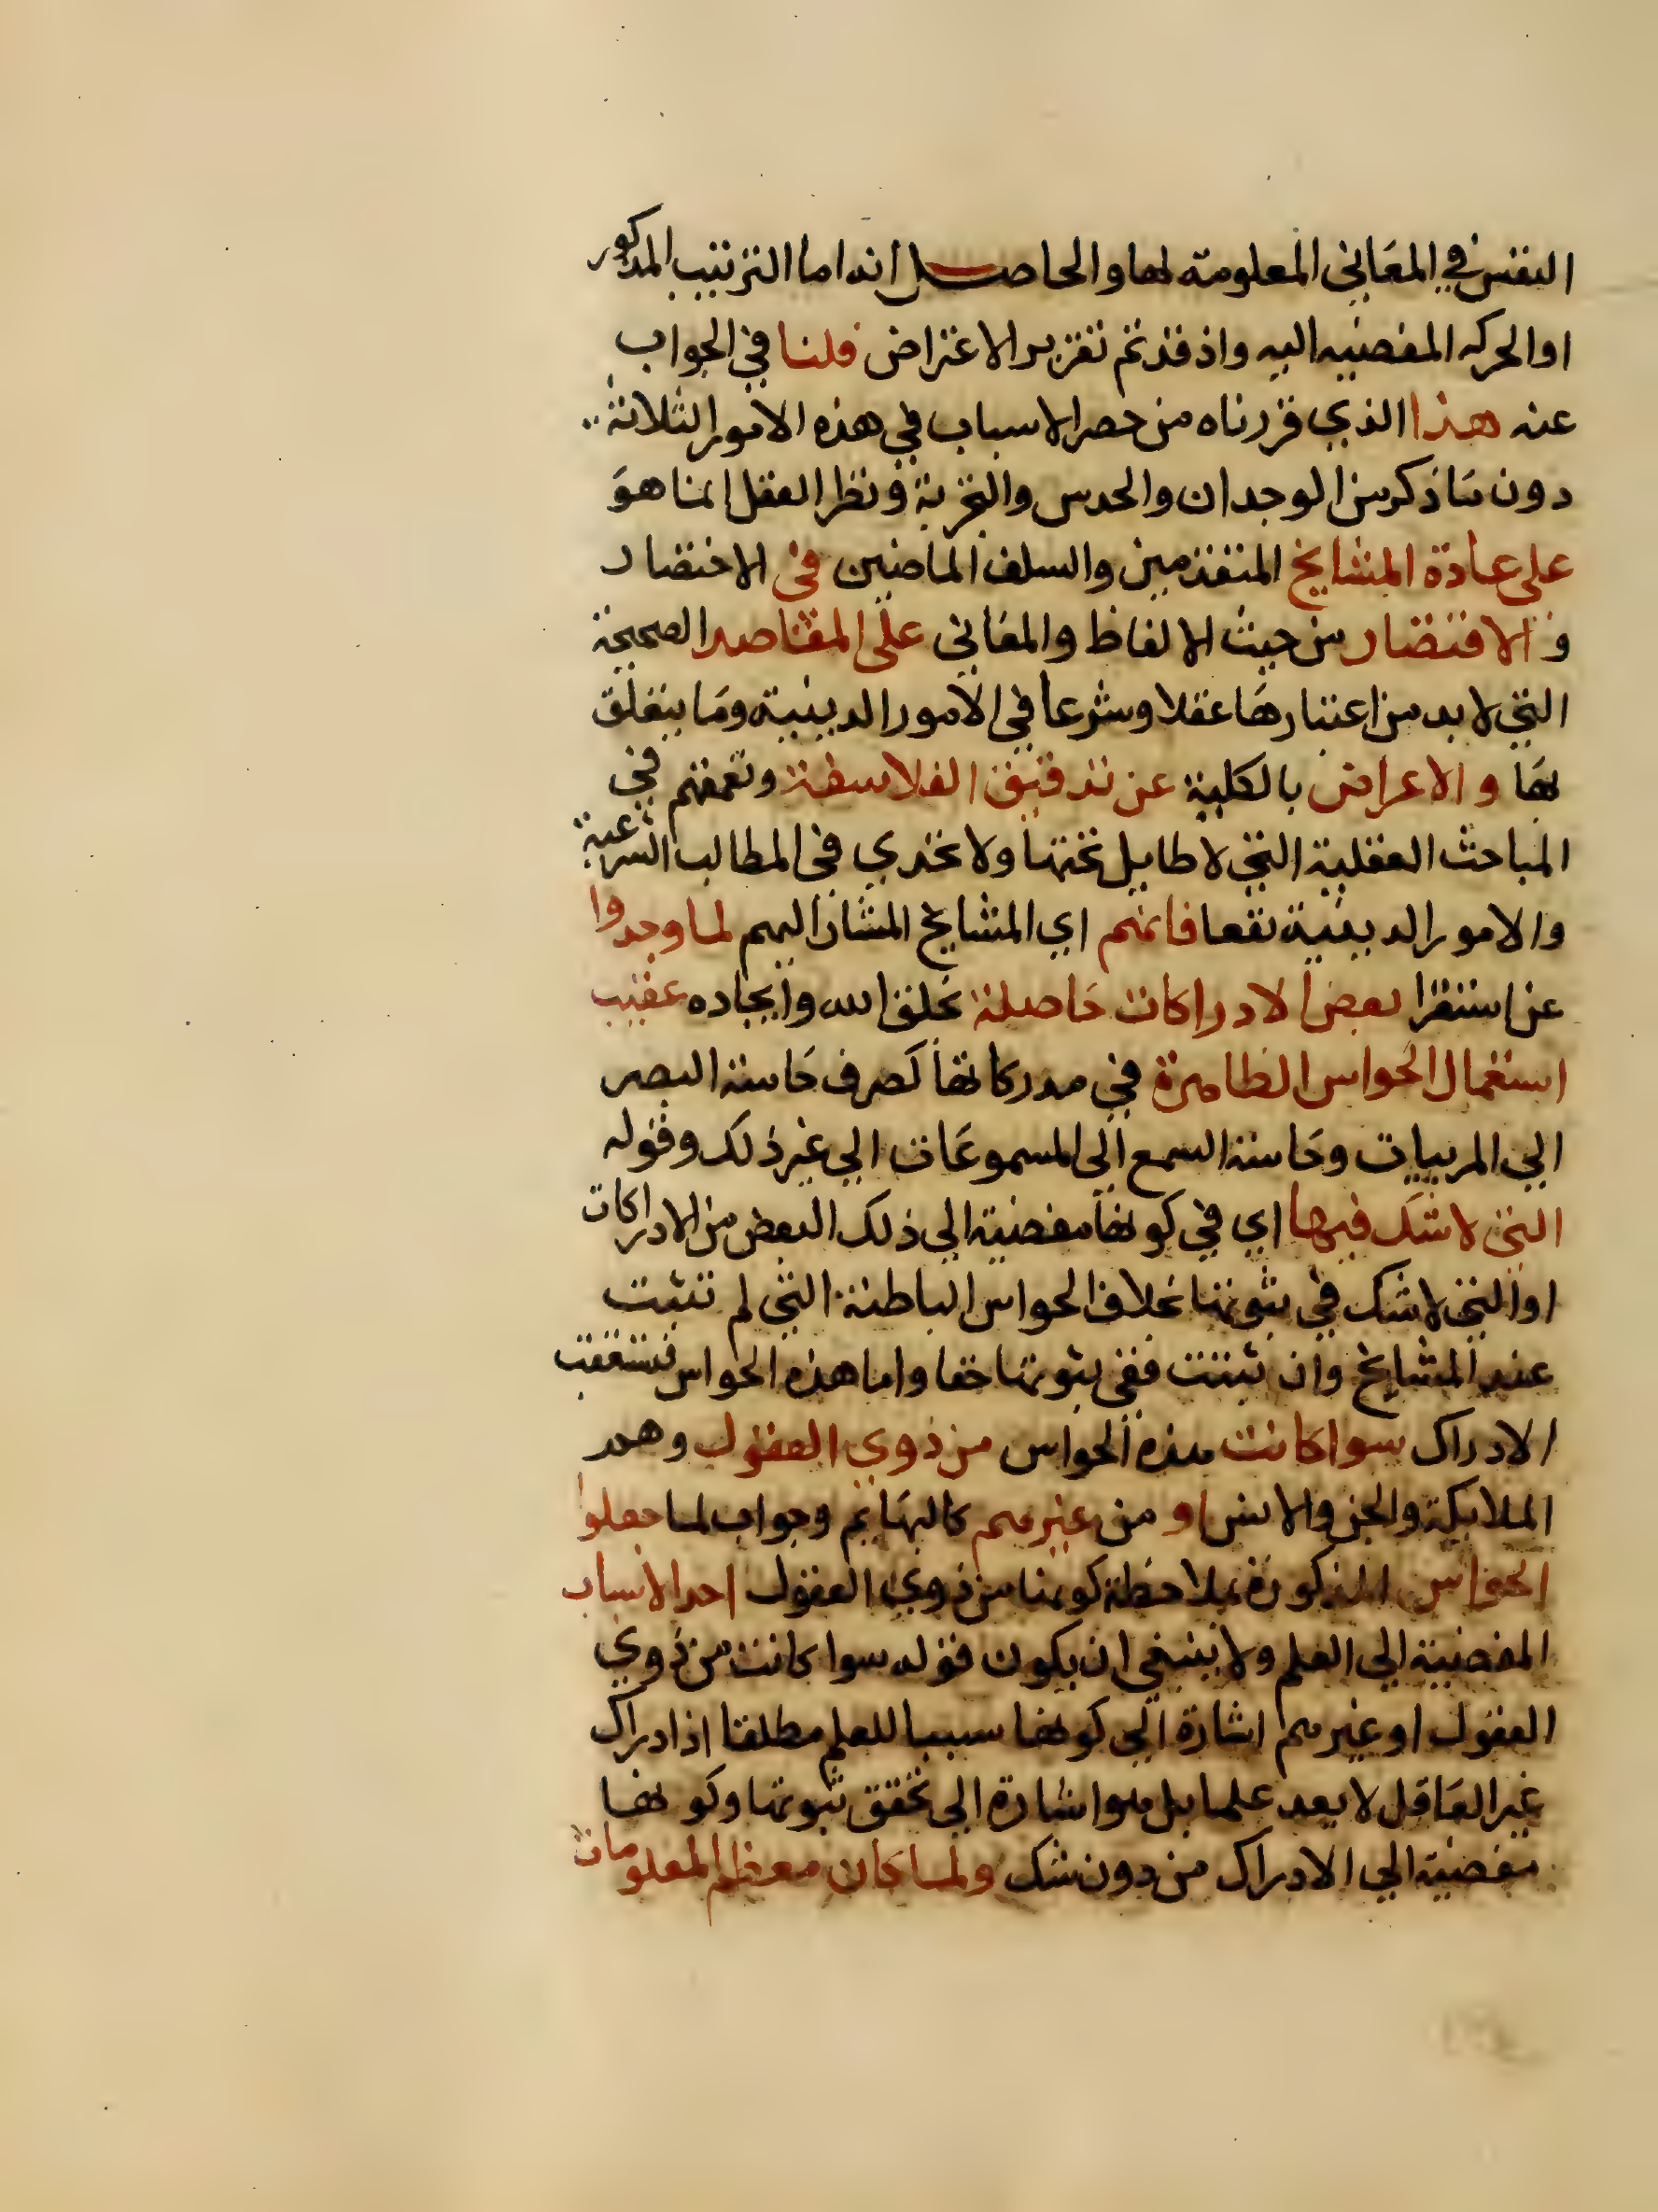 النفس في المعاني المعلومة لها والحاصل انه اما الترتيب المذكور
او الحركه المفضيه اليه واذ قد تم تقرير الاعتراض قلنا في الجواب
عنه هذا الذي قررناه من حصر الاسباب في هذه الامور الثلاثة
دون ما ذكر من الوجدان والحدس والتجربة ونظر العقل انما هو
على عادة المشايخ المتقدمين والسلف الماضين في الاختصار
و الاقتصار من حيث الالفاظ والمعاني على المقاصد الصحيحة
التي لا بد من اعتبارها عقلا وشرعا في الامور الدينية وما يتعلق
بها و الاعراض بالكلية عن تدقيق الفلاسفة وتعمقهم في
المباحث العقلية التي لا طايل تحتها ولا تجدي في المطالب الشرعية
والامور الدينية نفعا فانهم اي المشايخ المشار اليهم لما وجدوا
عن استقرا بعض الادراكات حاصلة بخلق الله وايجاده عقيب
استعمال الحواس الظاهرة في مدركاتها كصرف حاسة البصر
الي المرييات وحاسة السمع الى المسموعات الي غير ذلك وقوله
التي لا شك فيها اي في كونها مفضية الي ذلك البعض من الادراكات
او التي لا شك في ثبوتها بخلاف الحواس الباطنة التي لم تثبت
عند المشايخ وان ثبتت ففي ثبوتها خفا واما هذه الحواس فيستعقب
الادراك سوا كانت هذه الحواس من ذوي العقول وهم
الملايكة والجن والانس او من غيرهم كالبهايم وجواب لما جعلوا
الحواس المذكورة بملاحظة كونها من ذوي العقول احد الاسباب
المفضية الي العلم ولا ينبغي ان يكون قوله سوا كانت من ذوي
العقول او غيرهم اشارة الي كونها سببا للعلم مطلقا اذ ادراك
غير العاقل لا يعد علما بل هو اشارة الي تحقق ثبوتها وكونها
مفضية الي الادراك من دون شك ولما كان معظم المعلومات